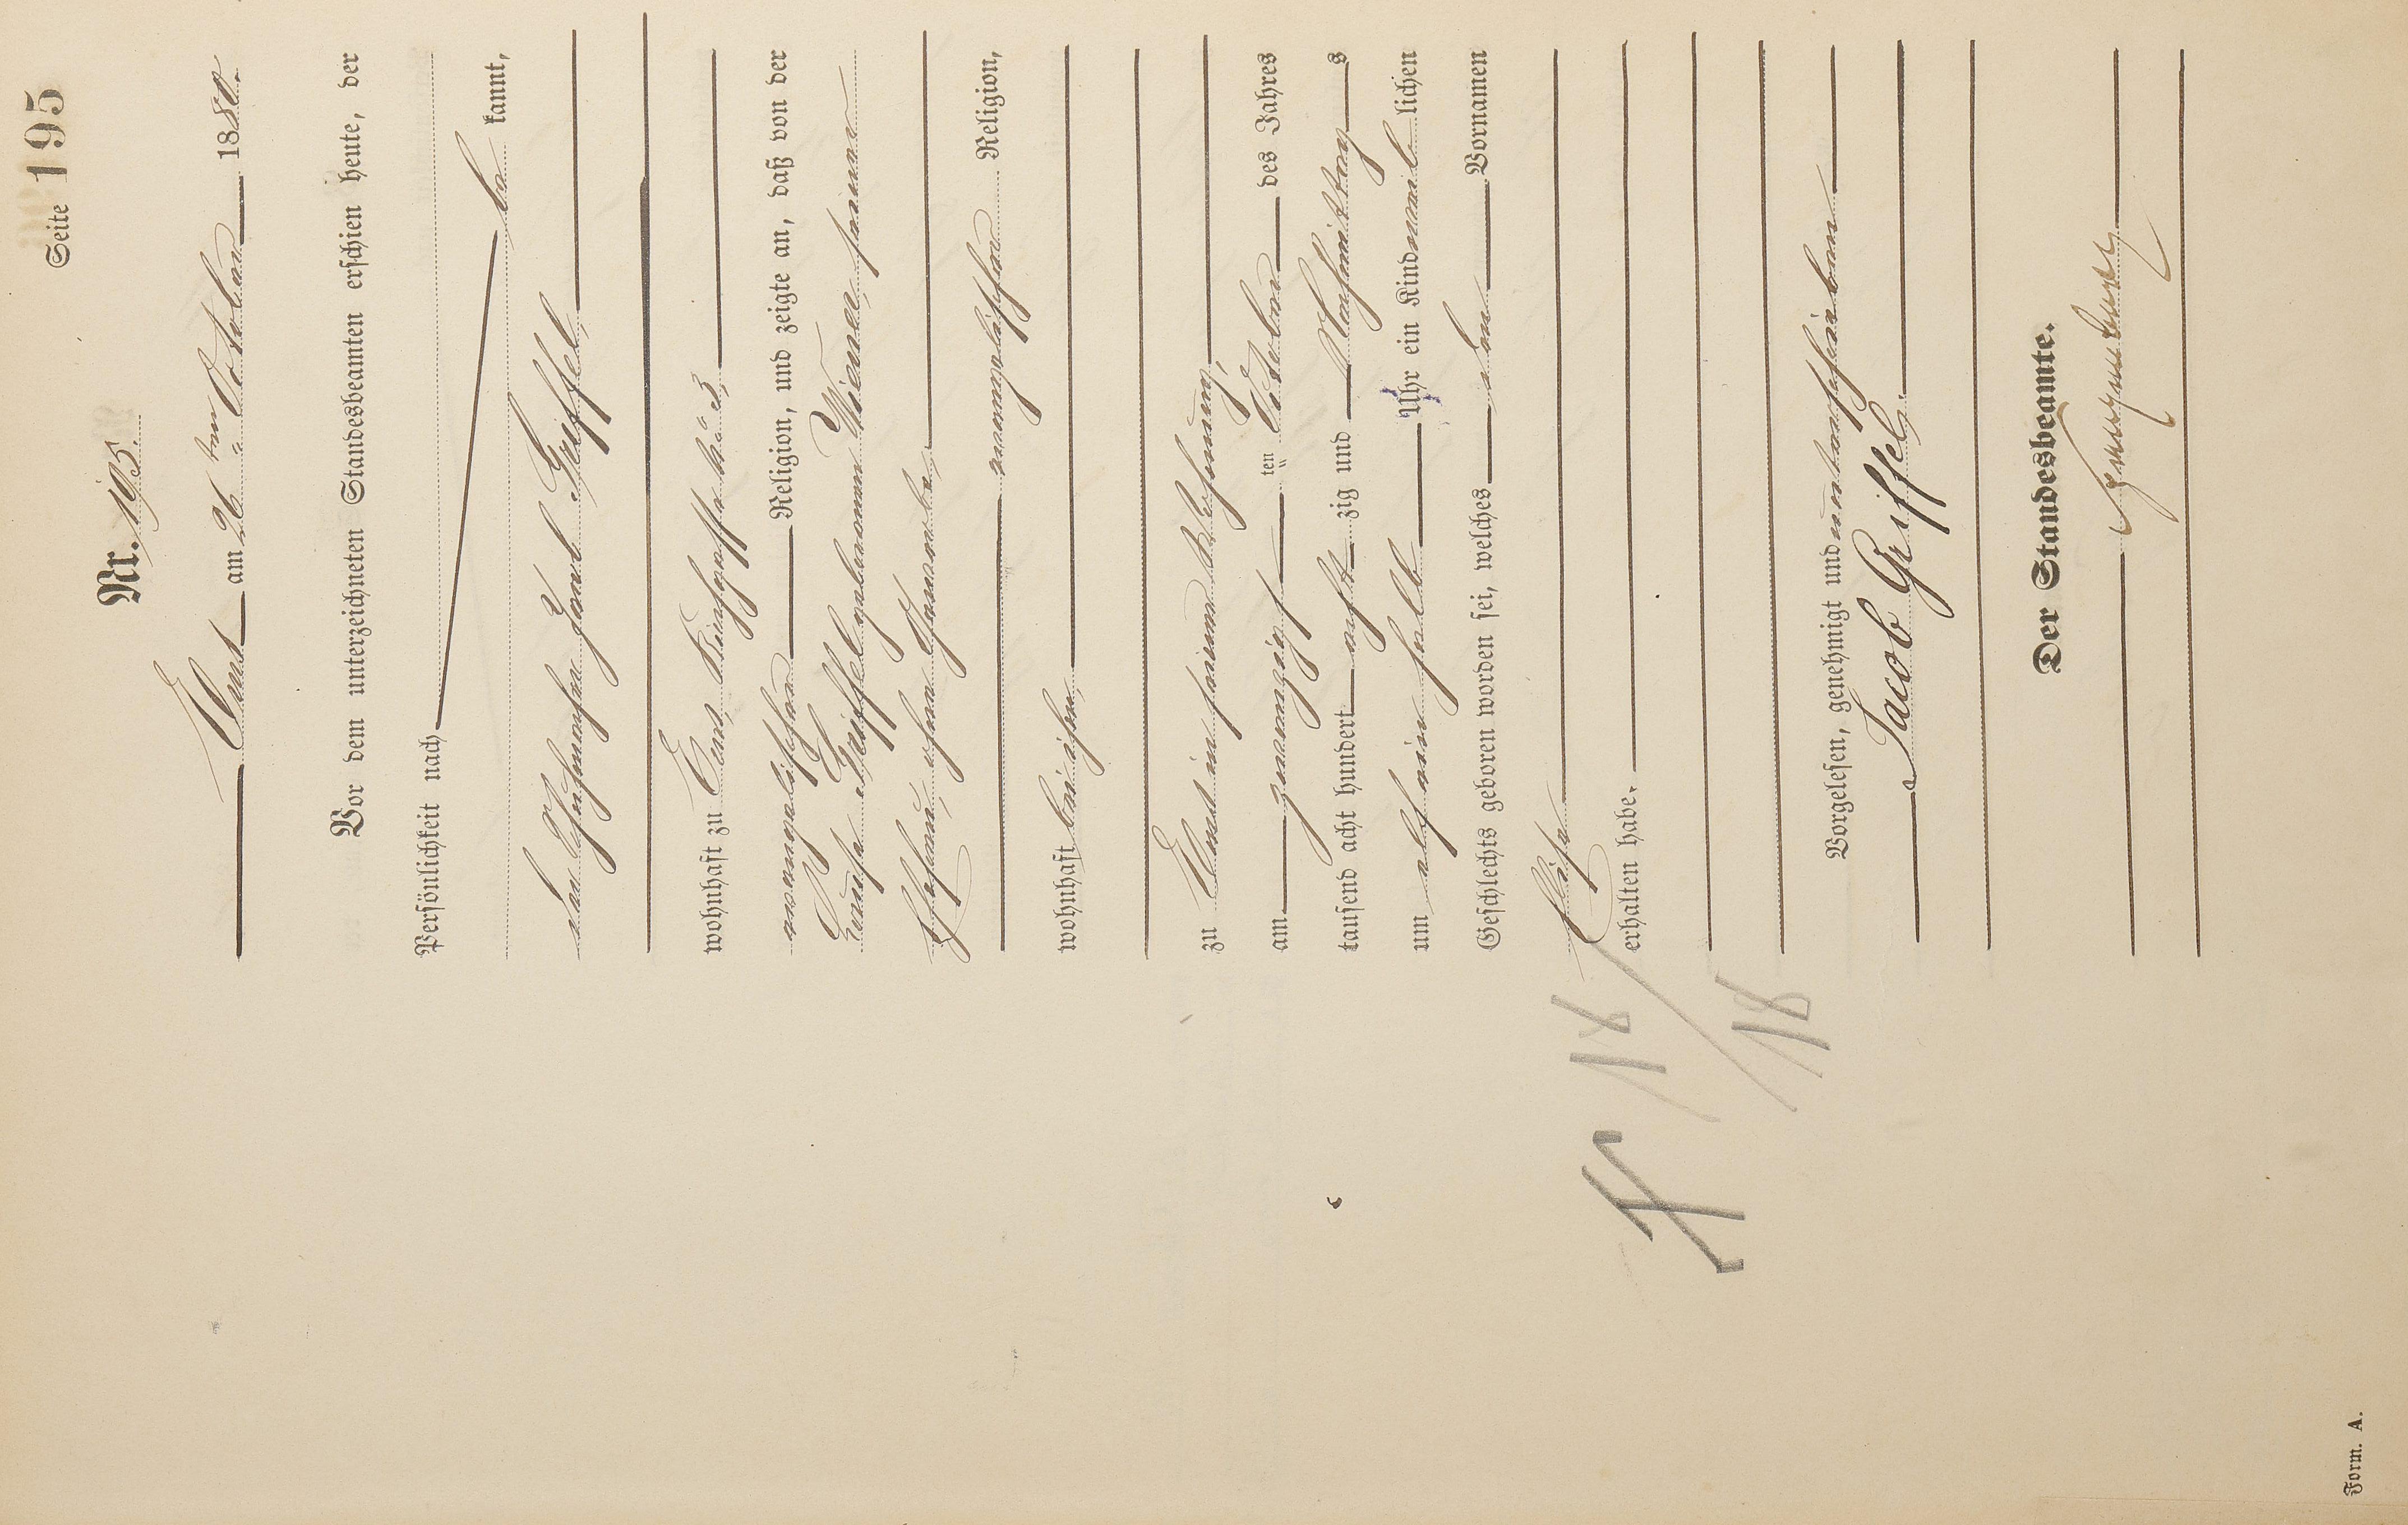 Seite 195
Nr. 195.
Ems am 26 ten October 1880.
Vor dem unterzeichneten Standesbeamten erschien heute, der
Persönlichkeit nach
be kannt,
der Schuhmacher Jacob Griffel,
wohnhaft zu Ems, 3,
evangelischer Religion, und zeigte an, daß von der
Louise Griffel geborenen Wiener, seiner
Ehefrau, ohne Gewerbe,
evangelischer Religion,
wohnhaft bei ihm,
zu Ems in seiner Wohnung,
am ten October des Jahres
tausend acht hundert acht zig und Nachmittag s
um elf ein halb Uhr ein Kind weib lichen
Geschlechts geboren worden sei, welches den Vornamen
Elise
erhalten habe.
Vorgelesen, genehmigt und unterschrieben
Jacob Griffel.
Der Standesbeamte.
Form. A.